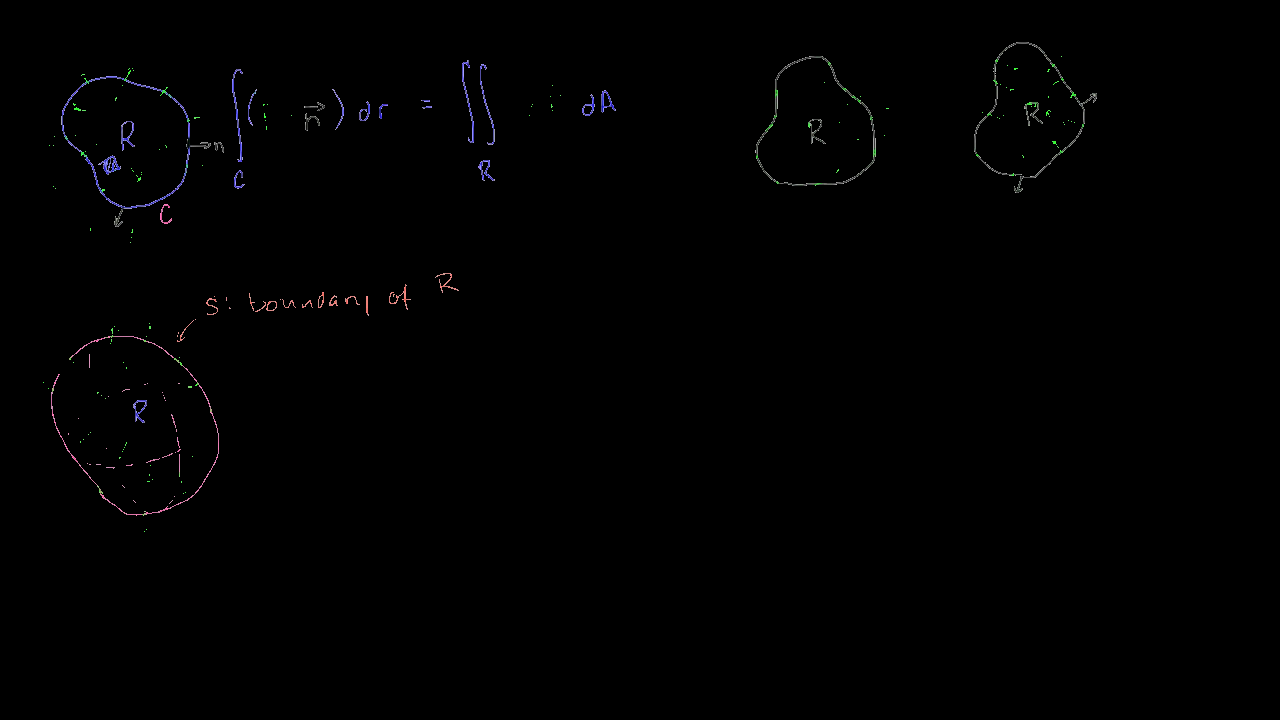 R
n
C
∫_C ( · n⃗ ) dr = ∬_R dA
R
R
S: boundary of R
R